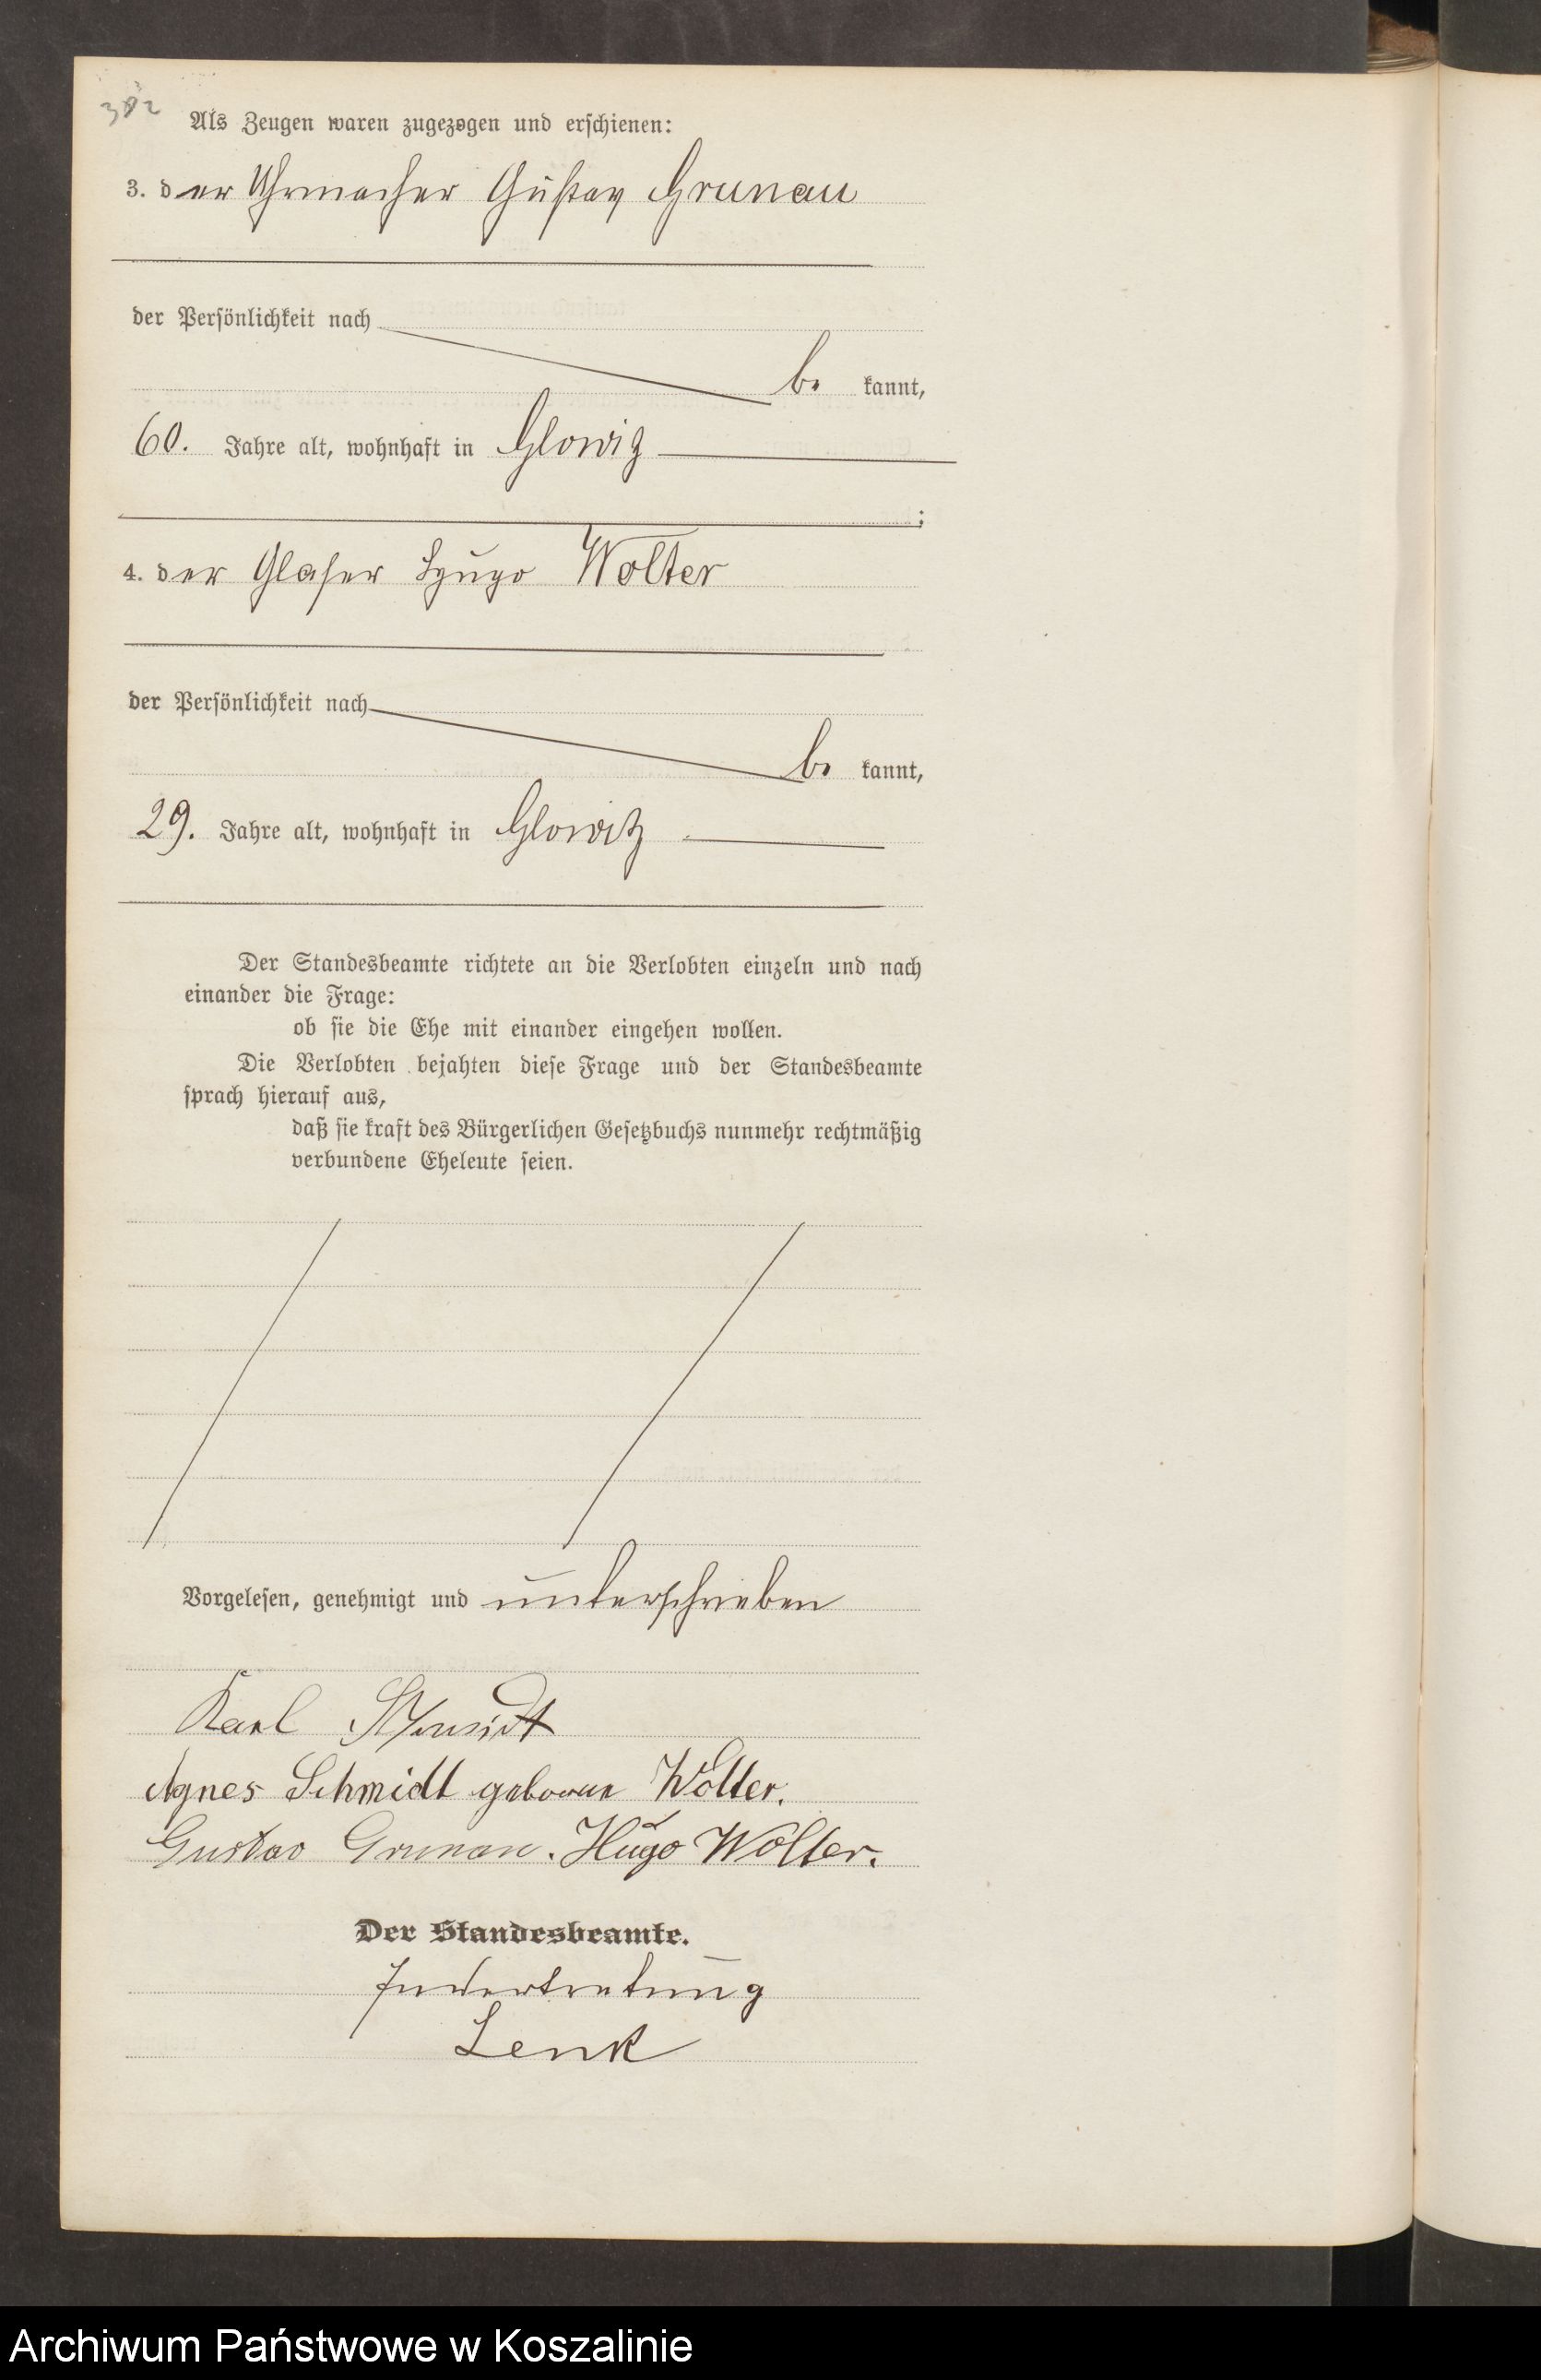 382
Als Zeugen waren zugezogen und erschienen:
3. der Uhrmacher Gustav Grunau
der Persönlichkeit nach
be kannt,
60. Jahre alt, wohnhaft in Glowitz
;
4. der Glaser Hugo Wolter
der Persönlichkeit nach
be kannt,
29. Jahre alt, wohnhaft in Glowitz
Der Standesbeamte richtete an die Verlobten einzeln und nach
einander die Frage:
ob sie die Ehe mit einander eingehen wollen.
Die Verlobten bejahten diese Frage und der Standesbeamte
sprach hierauf aus,
daß sie kraft des Bürgerlichen Gesetzbuchs nunmehr rechtmäßig
verbundene Eheleute seien.
Vorgelesen, genehmigt und unterschrieben
Karl Schmidt
Agnes Schmidt geborene Wolter.
Gustav Grunau. Hugo Wolter.
Der Standesbeamte.
In Vertretung
Lenk
Archiwum Państwowe w Koszalinie